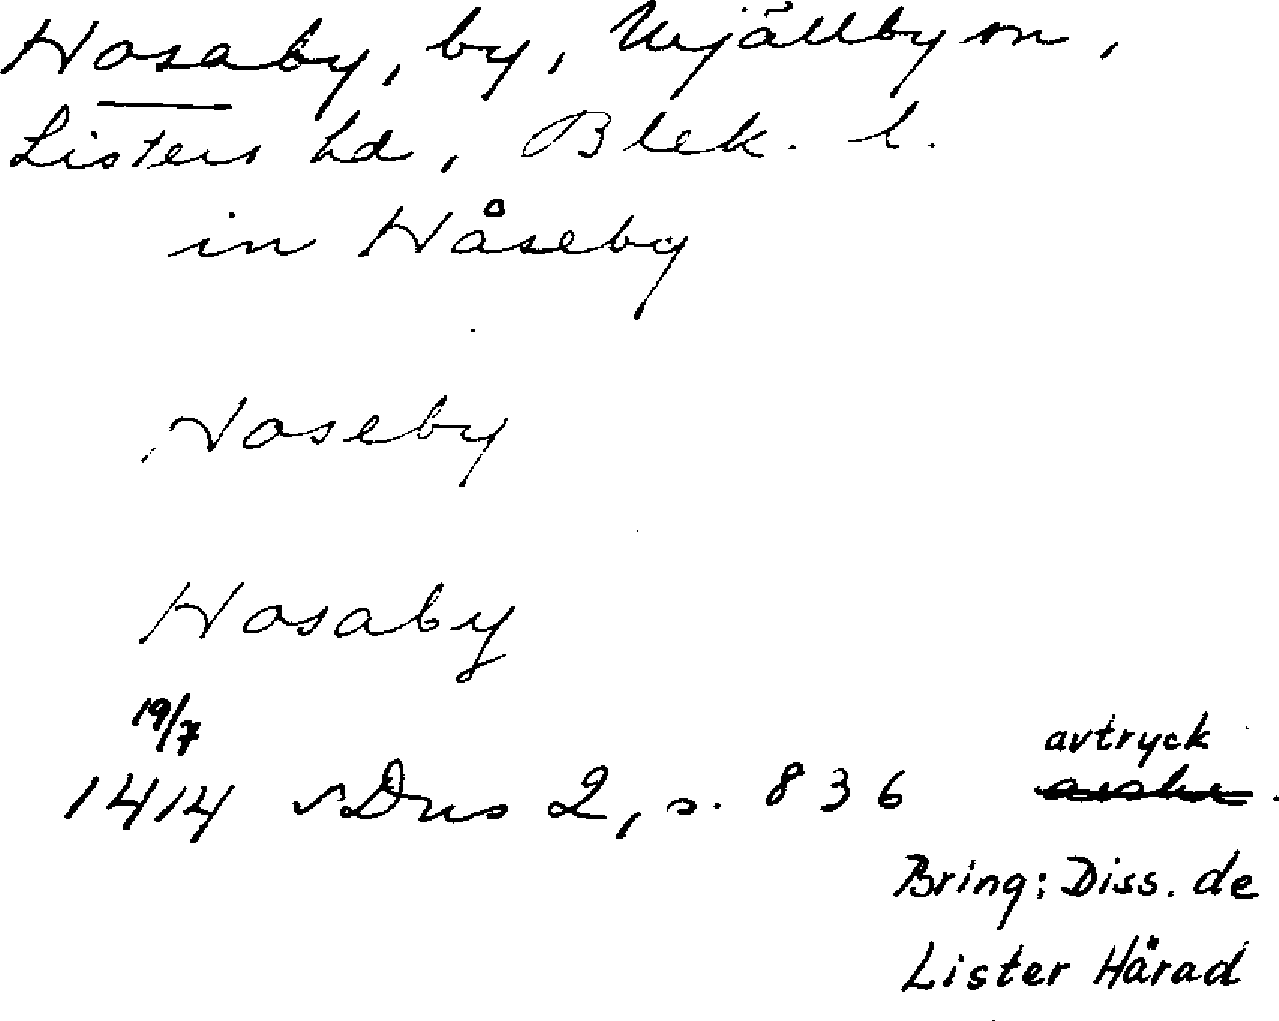 Hosaby, by, Mjällby sn,
Listers hd, Blek. l.
in Håseby
Hoseby
Hosaby
19/7
1414 SDns 2, s. 836
avtryck
Bring: Diss. de
Lister Härad